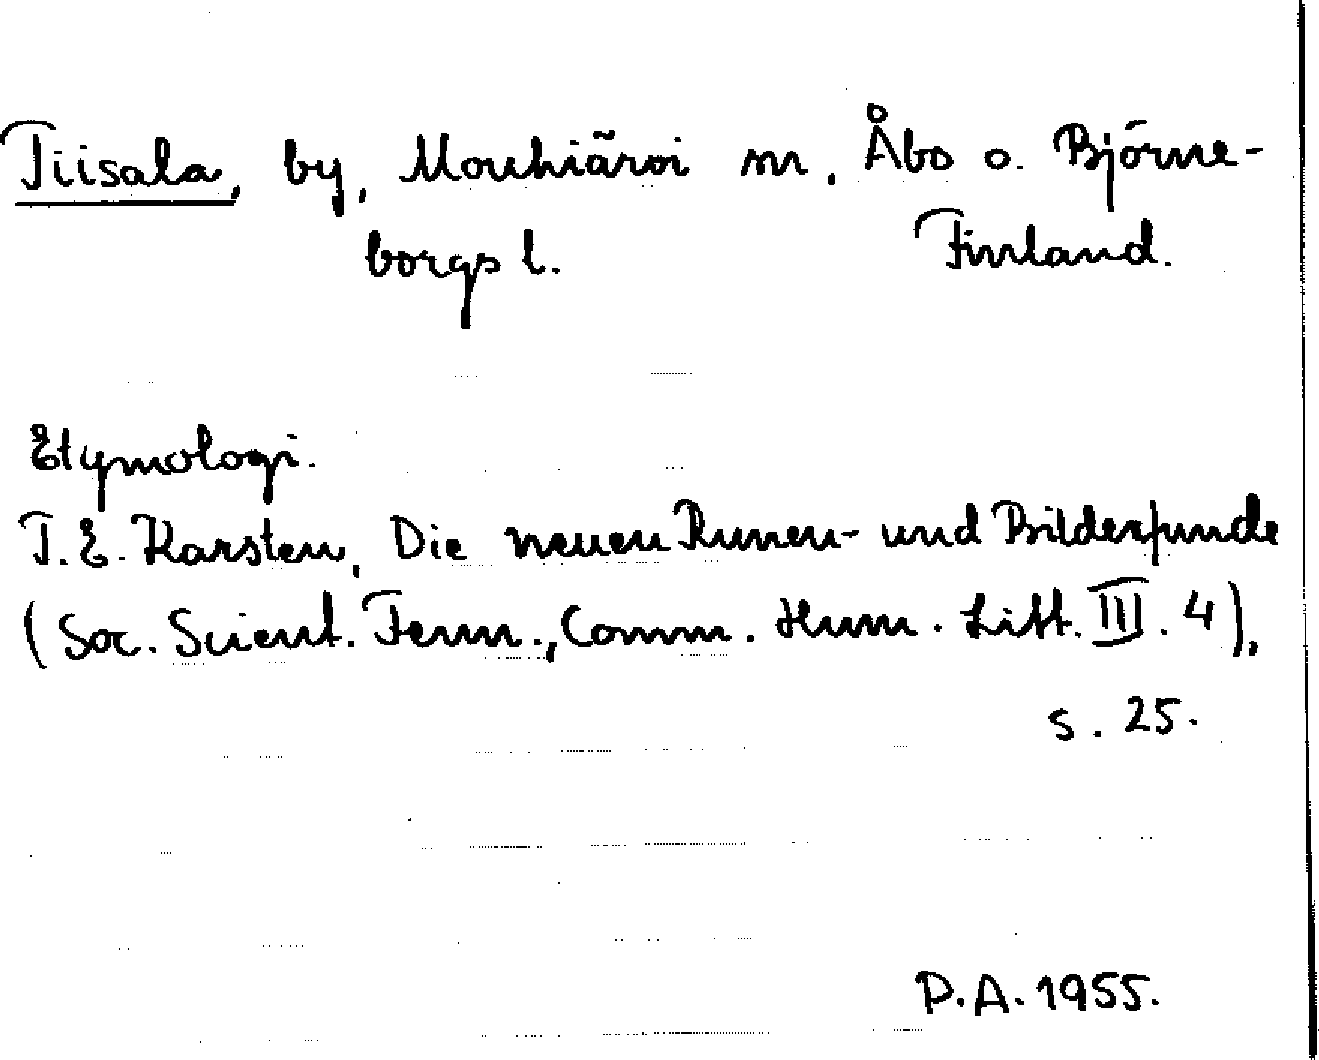 Tiisala, by, Mouhiärvi sn, Åbo o. Björne-
borgs l. Finland.
Etymologi.
T.E. Karsten, Die neuen Runen- und Bilderfunde
(Soc. Scient. Fenn., Comm. Hum. Litt. III. 4),
s. 25.
P.A. 1955.